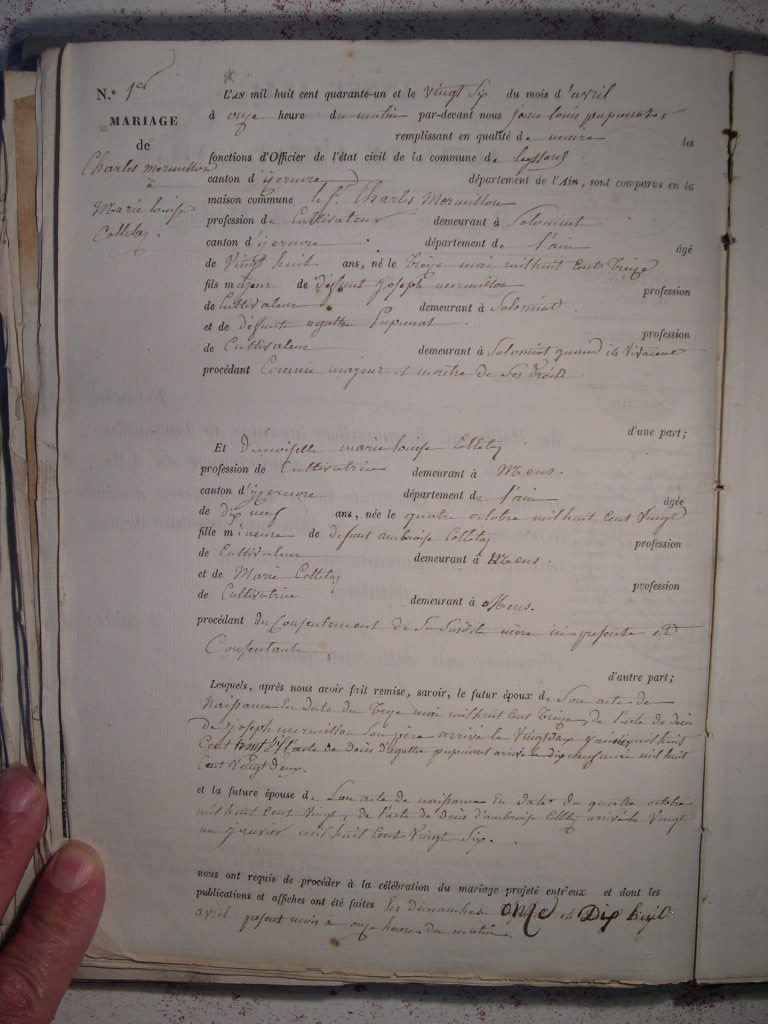 N.º 1er
MARIAGE
de
Charles mermillon
&
Marie louise
Colletaz
L'AN mil huit cent quarante-un et le vingt Six du mois d'avril
à onze heure du matin par-devant nous jean louis pupunat
remplissant en qualité de maire les
fonctions d'Officier de l'état civil de la commune de leyssard
canton d'izernore département de l'Ain, sont comparus en la
maison commune le Sr. Charles Mermillon
profession de Cultivateur demeurant à Solomiat
canton d'izernore département de l'ain âgé
de Vingt huit ans, né le treize mai milhuit Cent treize
fils majeur de défunt joseph mermillon profession
de Cultivateur demeurant à Solomiat
et de défunte agathe Pupunat profession
de Cultivateur demeurant à Solomiat quand ils Vivaient
procédant Comme majeur et maître de Ses droits
d'une part;
Et demoiselle marie louise Colletaz
profession de Cultivatrice demeurant à Mens.
canton d'izernore département de l'ain âgée
de dix neuf ans, née le quatre octobre milhuit Cent Vingt
fille mineure de défunt ambroise Colletaz profession
de Cultivateur demeurant à Mens.
et de Marie Colletaz profession
de Cultivatrice demeurant à Mens.
procédant du Consentement de Sa Susdite mère ici présente et
Consentante.
d'autre part;
Lesquels, après nous avoir fait remise, savoir, le futur époux de Son acte de
Naissance En date du treize mai milhuit Cent treize, de l'acte de décès
de joseph mermillon Son père arrivé le Vingt janvier mil huit
Cent l'acte de décès d'agathe pupunat arrivé le dix neuf mai mil huit
Cent Vingt deux.
et la future épouse de Son acte de naissance En date du quatre octobre
mil huit Cent Vingt, de l'acte de décès d'ambroise Colletaz arrivé le Vingt
un janvier mil huit Cent Vingt Six.
nous ont requis de procéder à la célébration du mariage projeté entr'eux et dont les
publications et affiches ont été faites les dimanches onze et Dix huit
avril présent mois à onze heure du matin.